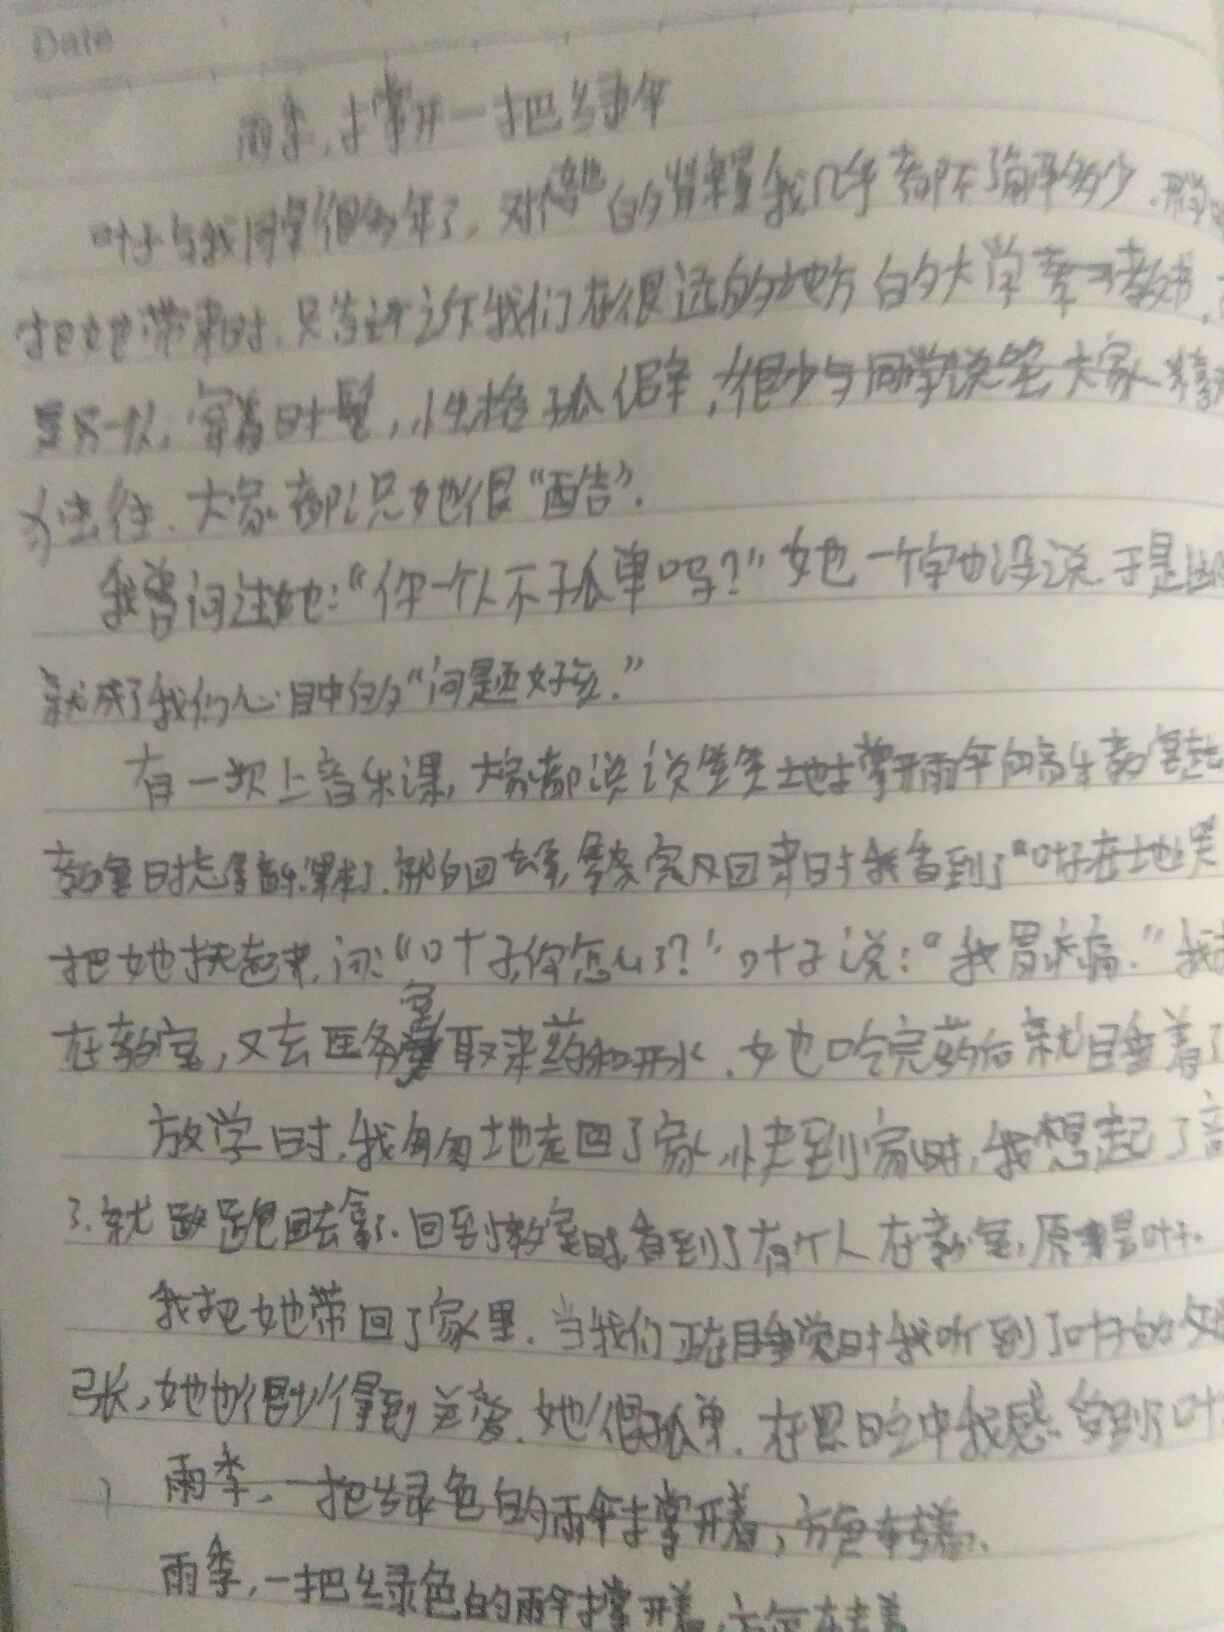 Date
雨季，撑开一把绿伞
叶子与我同学很多年了，对她的情况我几乎都不了解多少．
把她带来时．只告诉我们在很远的地方的大学教书，
是另一队，穿着时髦，性格孤僻，很少与同学说笑 大家
往．大家都说她很“酷”．
我曾问过她：“你一个人不孤单吗？”她一个字也没说．于是
就成了我们心目中的“问题女孩．”
有一次上音乐课，大家都说说笑笑地撑开雨伞向音乐教室走
教室时忘拿音乐课本了．就回去拿，拿完又回来时我看到了“叶子在地
把她扶起来，问：“叶子，你怎么了？”叶子说：“我胃疼痛．”我
在教室，又去医务室取来药和开水．她吃完药后就睡着了
放学时，我匆匆地走回了家，快到家时，我想起了
了．就 跑回去拿了．回到教室时，看到了有个人在教室，原来是叶子．
我把她带回了家里．当我们正在睡觉时我听到了叶子的
张，她也很少得到 ．她很孤单．在 中我感觉到了叶
雨季，一把绿色的雨伞撑开着，
雨季，一把绿色的雨伞撑开着，